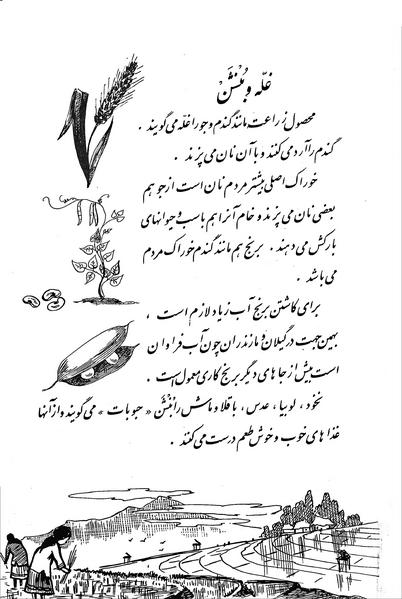 غلّه و بُنْشَنْ
محصول زراعت مانند گندم و جو را غلّه می گویند .
گندم را آرد می کنند و با آن نان می پزند .
خوراک اصلی بیشتر مردم نان است از جو هم
بعضی نان می پزند و خام آنرا هم باسب و حیوانهای
بارکش می دهند . برنج هم مانند گندم خوراک مردم
می باشد .
برای کاشتن برنج آب زیاد لازم است ،
بهمین جهت در گیلان و مازندران چون آب فراوان
است بیش از جاهای دیگر برنج کاری معمول است .
نخود ، لوبیا ، عدس ، باقلا و ماش را بُنْشَنْ « حبوبات » می گویند و از آنها
غذا های خوب و خوش طعم درست می کنند .